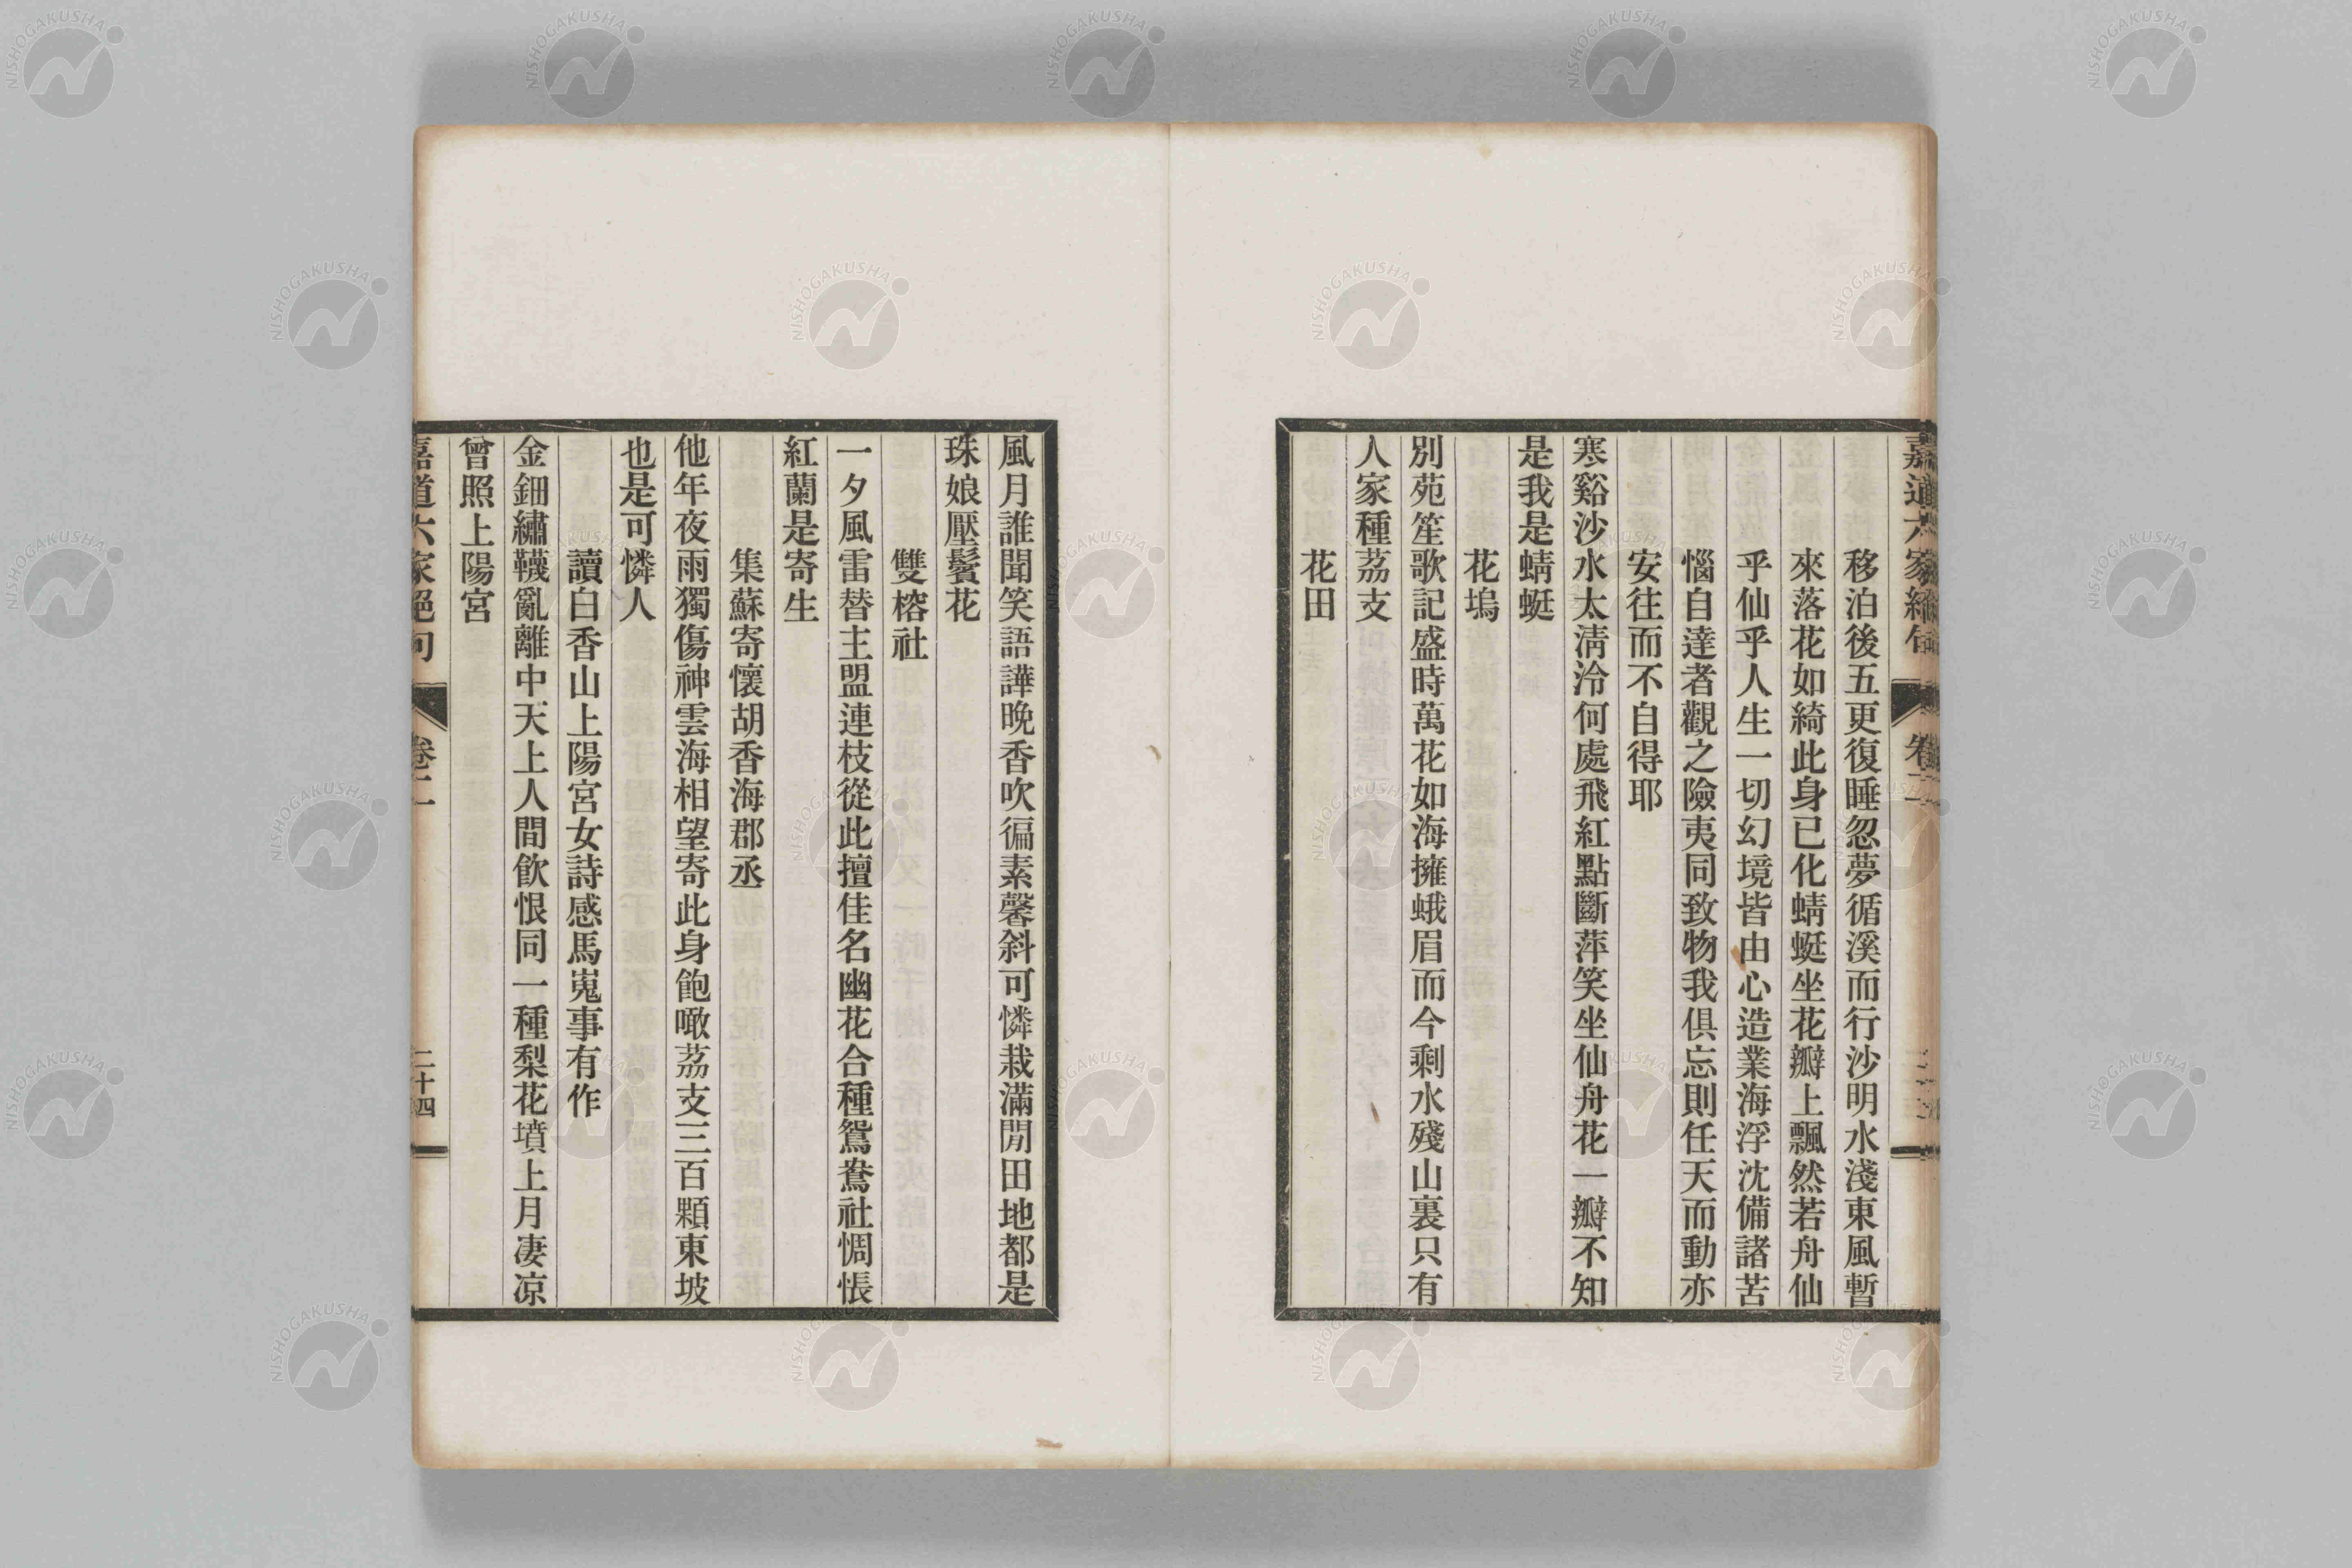 移泊後五更復睡忽夢循溪而行沙明水淺東風暫
來落花如綺此身已化蜻蜓坐花瓣上飄然若舟仙
乎仙乎人生一切幻境皆由心造業海浮沈備諸苦
惱自達者觀之險夷同致物我俱忘則任天而動亦
安往而不自得耶
寒谿沙水太淸泠何處飛紅點斷萍笑坐仙舟花一瓣不知
是我是蜻蜓
花塢
別苑笙歌記盛時萬花如海擁蛾眉而今剩水殘山裏只有
人家種荔支
花田
風月誰聞笑語譁晚香吹徧素馨斜可憐栽滿閒田地都是
珠娘壓鬢花
雙榕社
一夕風雷替主盟連枝從此擅佳名幽花合種鴛鴦社惆悵
紅蘭是寄生
集蘇寄懷胡香海郡丞
他年夜雨獨傷神雲海相望寄此身飽噉荔支三百顆東坡
也是可憐人
讀白香山上陽宮女詩感馬嵬事有作
金鈿繡韈亂離中天上人間飮恨同一種梨花墳上月凄凉
曾照上陽宮
嘉道六家絕句
卷二
二十四
NISHOGAKUSHA